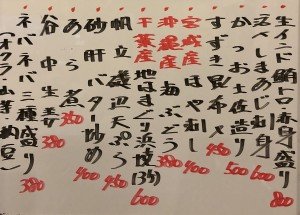 生インド鮪トロ赤身盛り 800
活〆しまあじ刺身 600
かつお土佐造り 500
すずき昆布〆 450
宮城産 ほや刺し 400
沖縄産 海ぶどう 380
千葉産 地はまぐり浜焼(3ヶ) 600
帆立磯辺天ぷら 450
砂肝バター炒め 400
あら煮 350
谷中生姜 380
ネバネバ三種盛り 380
(オクラ・山芋・納豆)